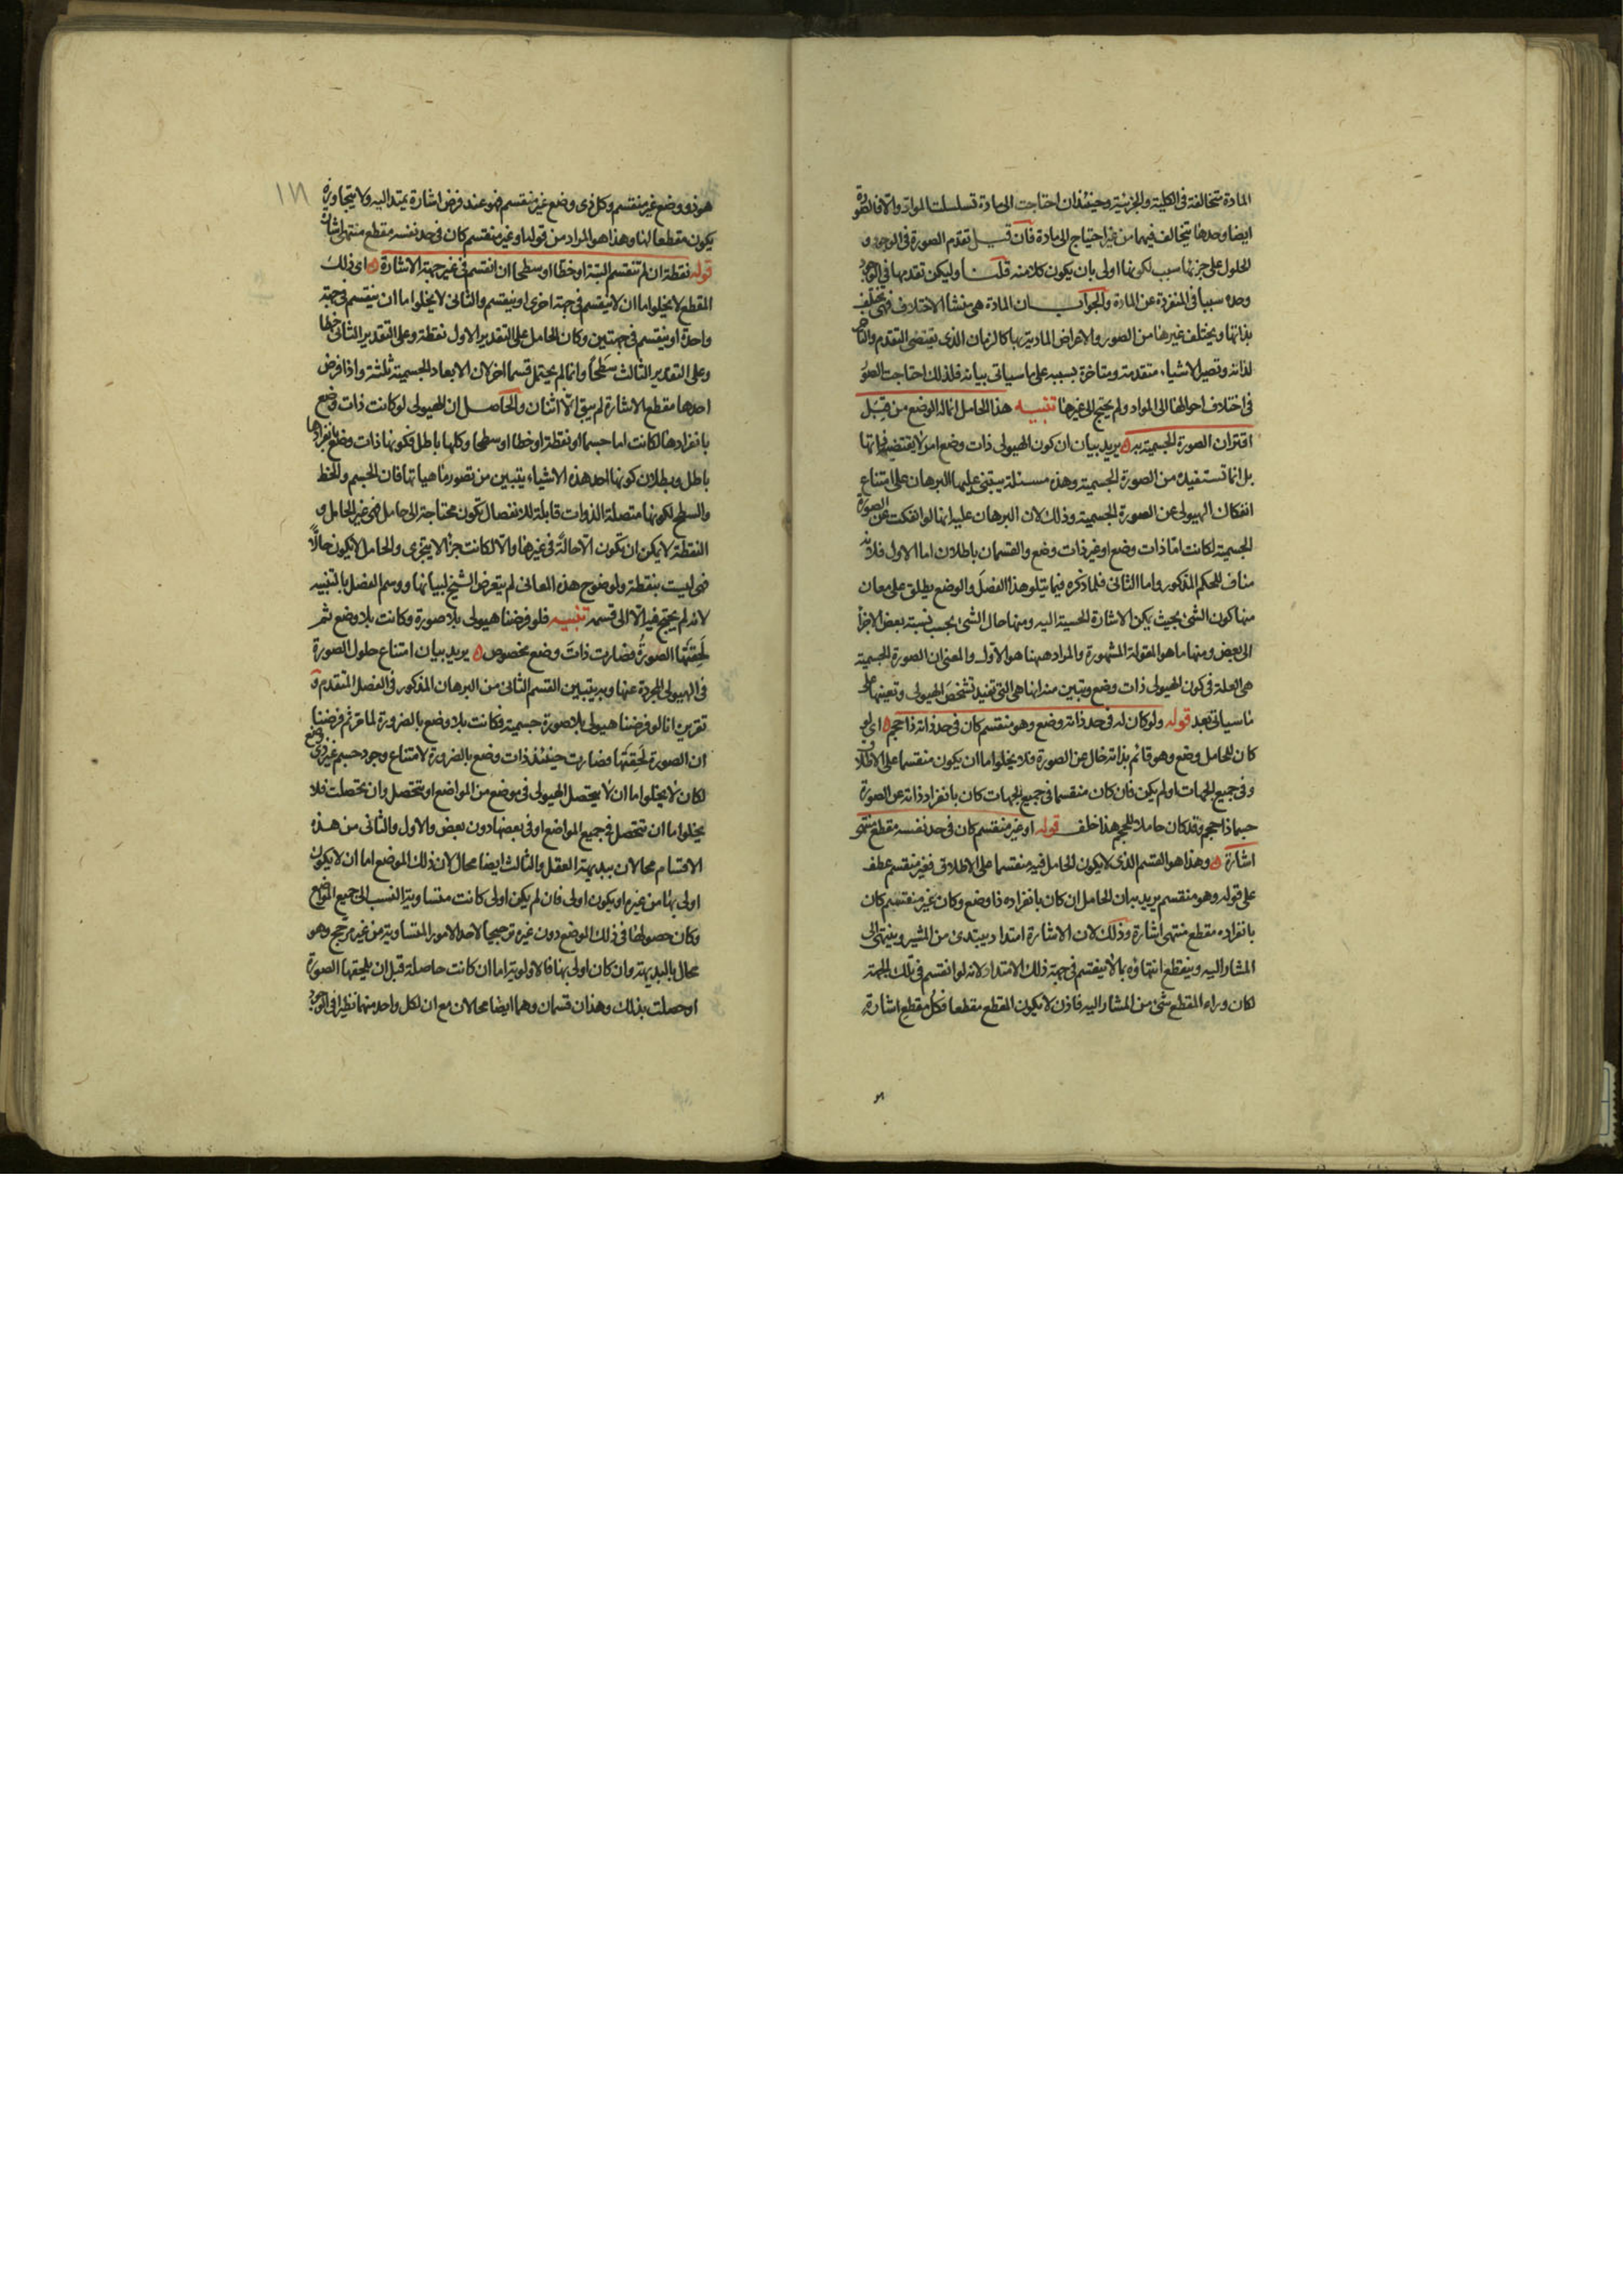 المادة متخالفة في الكلية والجزئية وحينئذ ان احتاجت الى مادة تسلسلت المواد والا فالصورة
ايضا وحدها يتخالف فيهما من غير احتياج الى مادة فان قيل تقدم الصورة في الوجود و
الحلول على جزئها سبب لكونها اولى بان يكون كلا منه قلنا وليكن تقدمها في الوجود
وحده سببا في المنفردة عن المادة والجواب ان المادة هي منشأ الاختلاف فهي تختلف
بذاتها ويختلف غيرها من الصور والاعراض المادية بها كالزمان الذي يقتضي التقدم والتأخر
لذاته وتصير الاشياء متقدمة ومتاخرة بسببه على ما سياتي بيانه فلذلك احتاجت الصور
في اختلاف احوالها الى المواد ولم يحتج الى غيرها تنبيه هذا الحامل انما له الوضع من قبل
اقتران الصورة الجسمية به يريد بيان ان كون الهيولى ذات وضع امر لا يقتضيه ذاتها
بل انما تستفيده من الصورة الجسمية وهذه مسئلة يبتنى عليها البرهان على امتناع
انفكاك الهيولى عن الصورة الجسمية وذلك لان البرهان عليه انها لو انفكت عن الصورة
الجسمية لكانت اما ذات وضع او غير ذات وضع والقسمان باطلان اما الاول فلانه
مناف للحكم المذكور واما الثاني فلما ذكره فيما يتلو هذا الفصل والوضع يطلق على معان
منها كون الشئ بحيث يمكن الاشارة الحسية اليه ومنها حال الشئ بحسب نسبة بعض الاجزا
الى بعض ومنها ما هو المقولة المشهورة والمراد ههنا هو الاول والمعنى ان الصورة الجسمية
هي العلة في كون الهيولى ذات وضع ويتبين منه انها هي التي تفيد تشخص الهيولى وتعينها على
ما سياتي بعد قوله ولو كان له في حد ذاته وضع وهو منقسم كان في حد ذاته ذا حجم اى لو
كان للحامل وضع وهو قائم بذاته خال عن الصورة فلا يخلو اما ان يكون منقسما على الاطلاق
وفي جميع الجهات او لم يكن فان كان منقسما في جميع الجهات كان بانفراد ذاته عن الصورة
جسما ذا حجم وقد كان حاملا للحجم هذا خلف قوله او غير منقسم كان في حد نفسه مقطع منتهى
اشارة وهذا هو القسم الذي لا يكون الحامل فيه منقسما على الاطلاق فغير منقسم عطف
على قوله وهو منقسم يريد به ان الحامل ان كان بانفراده ذا وضع وكان غير منقسم كان
بانفراده مقطع منتهى اشارة وذلك لان الاشارة امتداد يبتدئ من المشير وينتهى الى
المشار اليه وينقطع انتهاؤه بما لا ينقسم في جهة ذلك الامتداد لانه لو انقسم في تلك الجهة
لكان وراء المقطع شئ من المشار اليه فاذن لا يكون المقطع مقطعا فكل مقطع اشارة
هو ذو وضع غير منقسم وكل ذى وضع غير منقسم فهو عند فرض اشارة يمتد اليه ولا يتجاوزه
يكون مقطعا لها وهذا هو المراد من قوله او غير منقسم كان في حد نفسه مقطع منتهى اشارة
قوله نقطة ان لم تنقسم البتة او خطا او سطحا ان انقسم في غير جهة الاشارة اى ذلك
المقطع لا يخلو اما ان لا ينقسم في جهة اخرى او ينقسم والثانى لا يخلو اما ان ينقسم في جهة
واحدة او ينقسم في جهتين وكان الحامل على التقدير الاول نقطة وعلى التقدير الثانى خطا
وعلى التقدير الثالث سطحا وانما لم يحتمل قسما آخر لان الابعاد الجسمية ثلثة واذا فرض
احدها مقطع الاشارة لم يبق الا اثنان والحاصل ان الهيولى لو كانت ذات وضع
بانفرادها لكانت اما جسما او نقطة او خطا او سطحا وكلها باطل فكونها ذات وضع بانفرادها
باطل وبطلان كونها احد هذه الاشياء يتبين من تصور ماهياتها فان الجسم والخط
والسطح لكونها متصلة الذوات قابلة للانفصال تكون محتاجة الى حامل فهى غير الحامل و
النقطة لا يمكن ان تكون الا حالة في غيرها والا لكانت جزءا لا يتجزى والحامل لا يكون حالا
فهى ليست بنقطة ولوضوح هذه المعانى لم يتعرض الشيخ لبيانها ووسم الفصل بالتنبيه
لانه لم يحتج فيه الا الى قسمة تنبيه فلو فرضنا هيولى بلا صورة وكانت بلا وضع ثم
لحقتها الصورة فصارت ذات وضع مخصوص يريد بيان امتناع حلول الصورة
في الهيولى المجردة عنها وبه يتبين القسم الثانى من البرهان المذكور في الفصل المتقدم و
تقريره انا لو فرضنا هيولى بلا صورة جسمية فكانت بلا وضع بالضرورة لما مر ثم فرضنا
ان الصورة لحقتها فصارت حينئذ ذات وضع بالضرورة لامتناع وجود جسم غير ذى وضع
لكان لا يخلو اما ان لا يتحصل الهيولى في موضع من المواضع او تتحصل وان تحصلت فلا
يخلو اما ان تتحصل في جميع المواضع او في بعضها دون بعض والاول والثانى من هذه
الاقسام محالان ببديهة العقل والثالث ايضا محال لان ذلك الموضع اما ان لا يكون
اولى بها من غيره او يكون اولى فان لم يكن اولى كانت متساوية النسب الى جميع المواضع
وكان حصولها في ذلك الموضع دون غيره ترجيحا لاحد الامور المتساوية من غير مرجح وهو
محال بالبديهة وان كان اولى بها فالاولوية اما ان كانت حاصلة قبل ان يلحقها الصورة
او حصلت بذلك وهذان قسمان وهما ايضا محالان مع ان لكل واحد منهما نظيرا في الوجود